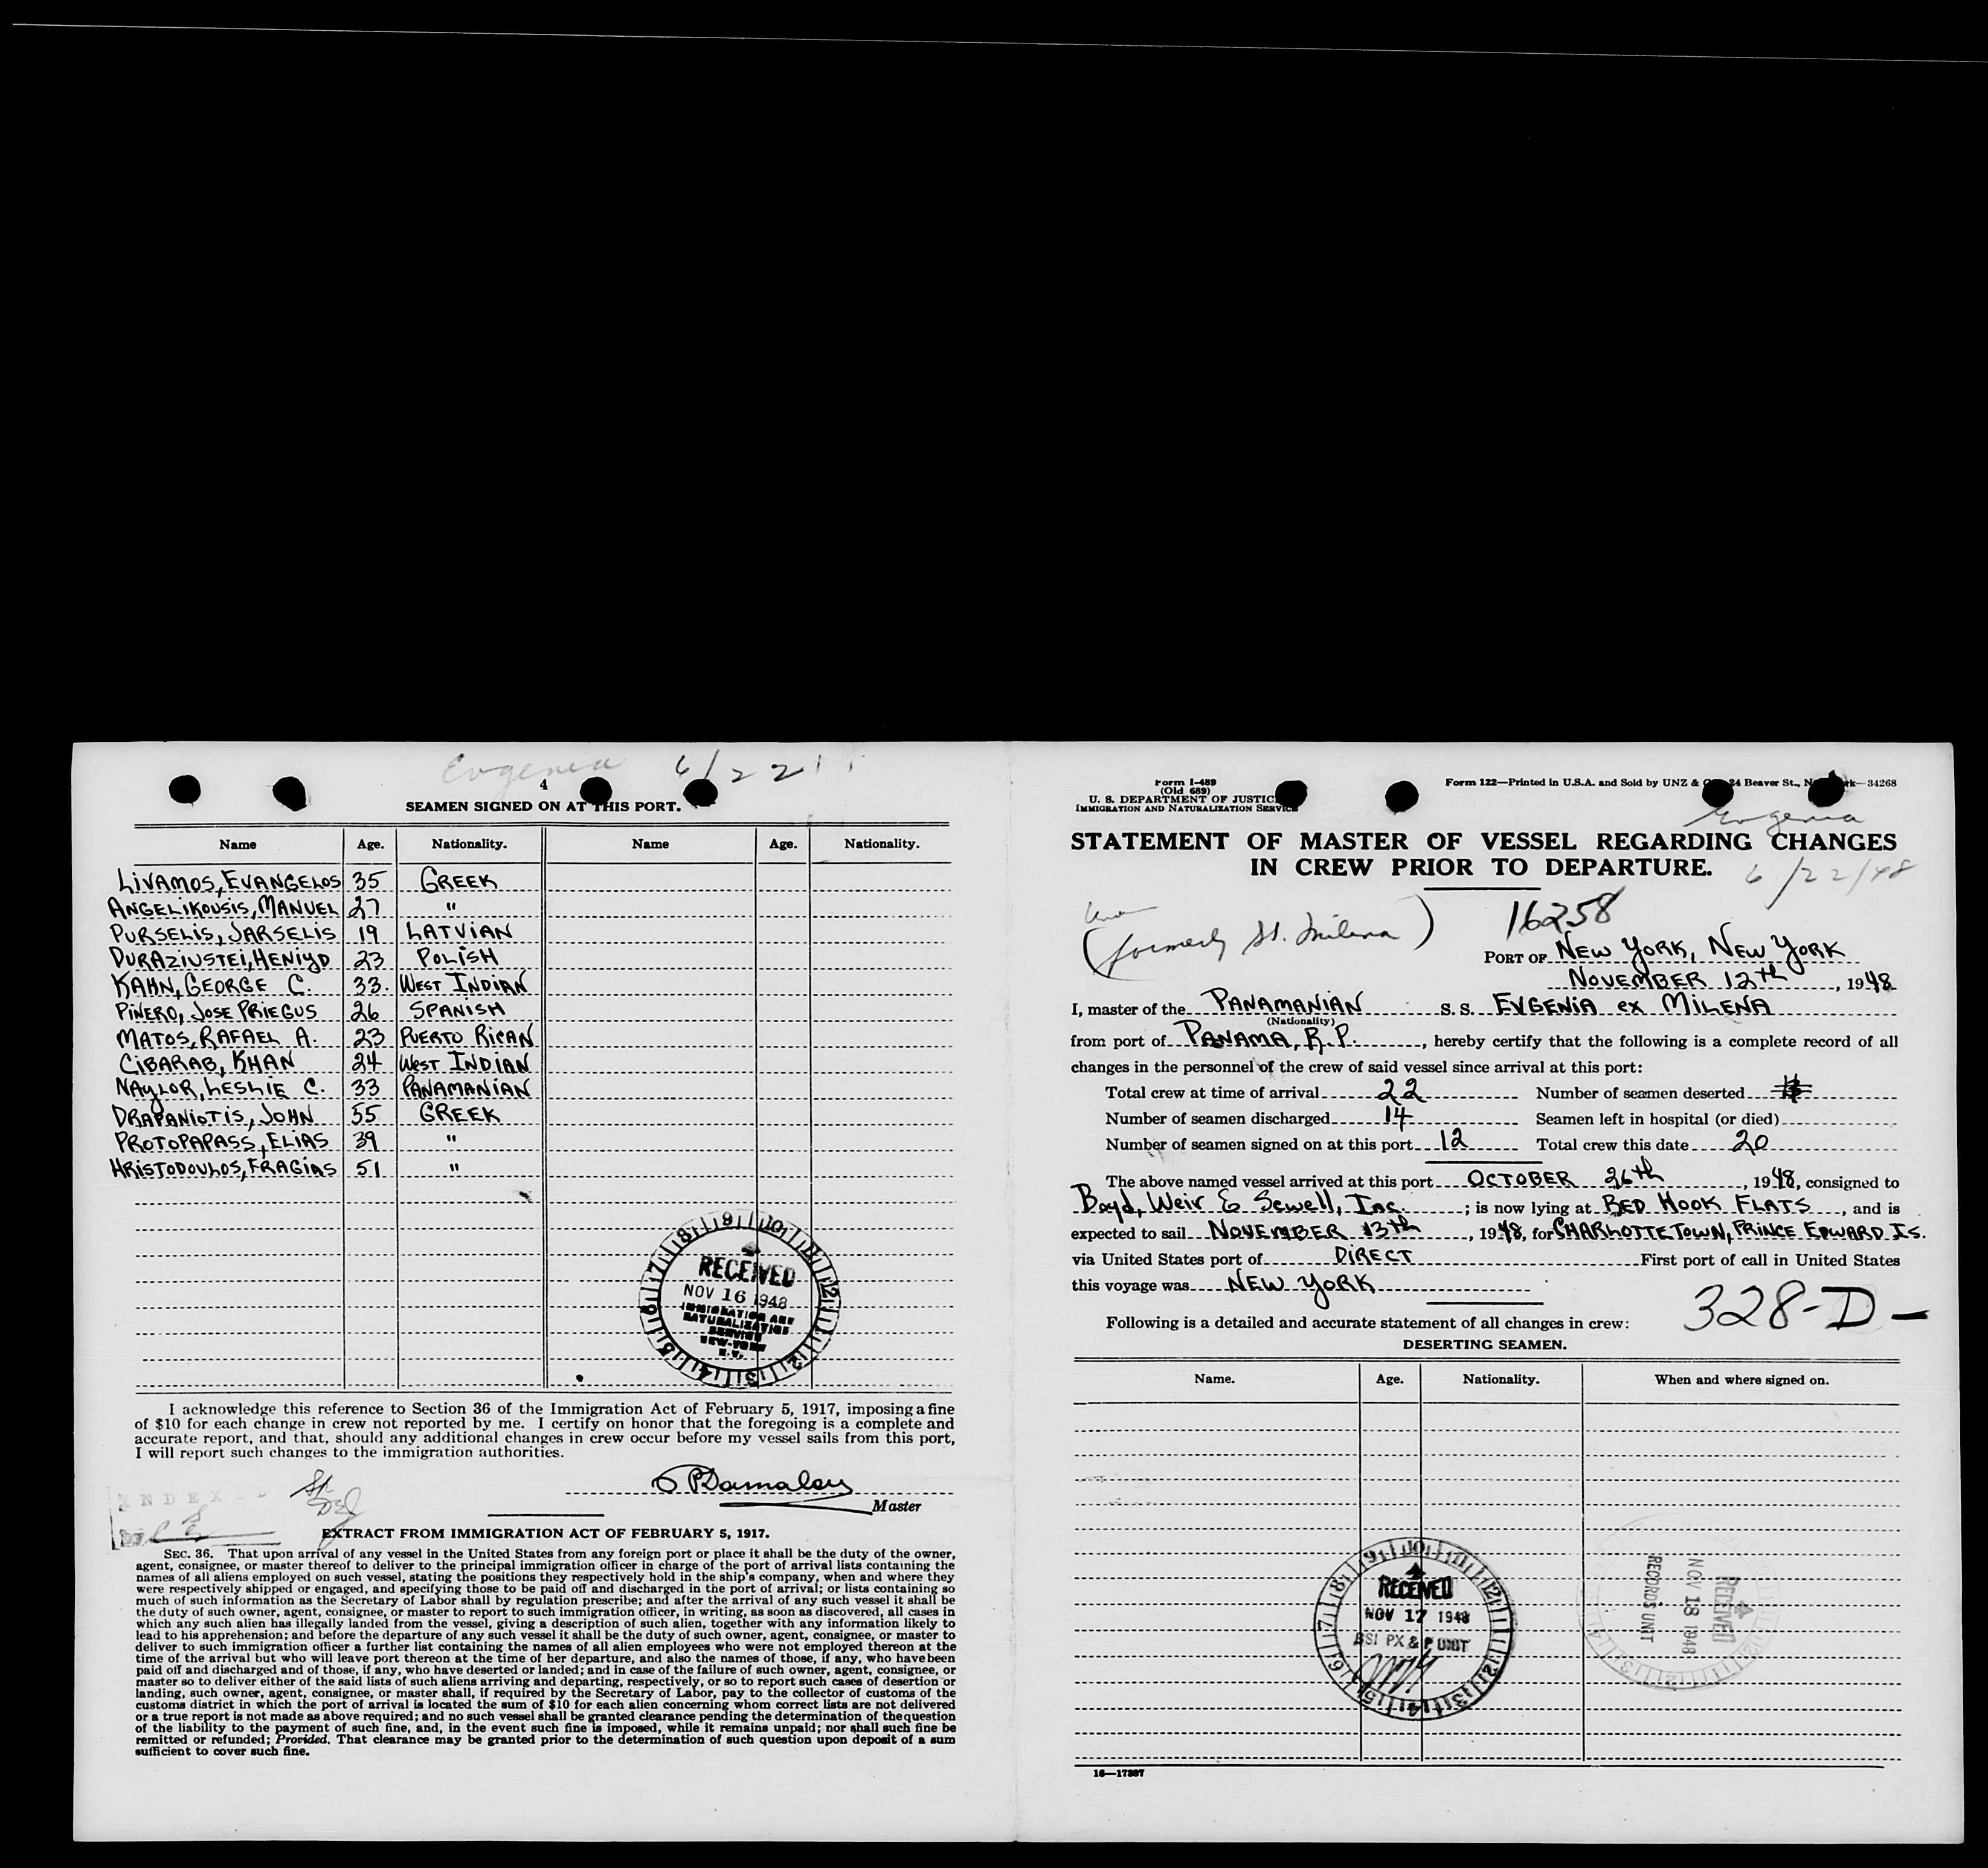 Evgenia 6/22
4
SEAMEN SIGNED ON AT THIS PORT.
Name Age. Nationality. Name Age. Nationality.
LIVAMOS, EVANGELOS 35 GREEK
ANGELIKOUSIS, MANUEL 27 "
PURSELIS, JARSELIS 19 LATVIAN
DURAZIUSTEI, HENIYD 23 POLISH
KAHN, GEORGE C. 33. WEST INDIAN
PIÑERO, JOSE PRIEGUS 26 SPANISH
MATOS, RAFAEL A. 23 PUERTO RICAN
CIBARAB, KHAN 24 WEST INDIAN
NAYLOR, LESLIE C. 33 PANAMANIAN
DRAPANIOTIS, JOHN 55 GREEK
PROTOPAPASS, ELIAS 39 "
HRISTODOULOS, FRAGIAS 51 "
RECEIVED
NOV 16 1948
IMMIGRATION AND
NATURALIZATION
SERVICE
NEW-YORK
N.Y.
I acknowledge this reference to Section 36 of the Immigration Act of February 5, 1917, imposing a fine
of $10 for each change in crew not reported by me. I certify on honor that the foregoing is a complete and
accurate report, and that, should any additional changes in crew occur before my vessel sails from this port,
I will report such changes to the immigration authorities.
Master
INDEX
EXTRACT FROM IMMIGRATION ACT OF FEBRUARY 5, 1917.
SEC. 36. That upon arrival of any vessel in the United States from any foreign port or place it shall be the duty of the owner,
agent, consignee, or master thereof to deliver to the principal immigration officer in charge of the port of arrival lists containing the
names of all aliens employed on such vessel, stating the positions they respectively hold in the ship's company, when and where they
were respectively shipped or engaged, and specifying those to be paid off and discharged in the port of arrival; or lists containing so
much of such information as the Secretary of Labor shall by regulation prescribe; and after the arrival of any such vessel it shall be
the duty of such owner, agent, consignee, or master to report to such immigration officer, in writing, as soon as discovered, all cases in
which any such alien has illegally landed from the vessel, giving a description of such alien, together with any information likely to
lead to his apprehension; and before the departure of any such vessel it shall be the duty of such owner, agent, consignee, or master to
deliver to such immigration officer a further list containing the names of all alien employees who were not employed thereon at the
time of the arrival but who will leave port thereon at the time of her departure, and also the names of those, if any, who have been
paid off and discharged and of those, if any, who have deserted or landed; and in case of the failure of such owner, agent, consignee, or
master so to deliver either of the said lists of such aliens arriving and departing, respectively, or so to report such cases of desertion or
landing, such owner, agent, consignee, or master shall, if required by the Secretary of Labor, pay to the collector of customs of the
customs district in which the port of arrival is located the sum of $10 for each alien concerning whom correct lists are not delivered
or a true report is not made as above required; and no such vessel shall be granted clearance pending the determination of the question
of the liability to the payment of such fine, and, in the event such fine is imposed, while it remains unpaid; nor shall such fine be
remitted or refunded; Provided, That clearance may be granted prior to the determination of such question upon deposit of a sum
sufficient to cover such fine.
Form I-489
(Old 689)
U. S. DEPARTMENT OF JUSTICE
IMMIGRATION AND NATURALIZATION SERVICE
Form 122—Printed in U.S.A. and Sold by UNZ & 24 Beaver St., —34268
Evgenia
STATEMENT OF MASTER OF VESSEL REGARDING CHANGES
IN CREW PRIOR TO DEPARTURE.
6/22/48
(formerly SS. Milena)
16258
PORT OF NEW YORK, NEW YORK
NOVEMBER 12th, 1948
I, master of the PANAMANIAN S. S. EVGENIA ex MILENA
(Nationality)
from port of PANAMA, R.P., hereby certify that the following is a complete record of all
changes in the personnel of the crew of said vessel since arrival at this port:
Total crew at time of arrival 22 Number of seamen deserted
Number of seamen discharged 14 Seamen left in hospital (or died)
Number of seamen signed on at this port 12 Total crew this date 20
The above named vessel arrived at this port OCTOBER 26th, 1948, consigned to
Boyd, Weir & Sewell, Inc.; is now lying at RED HOOK FLATS, and is
expected to sail NOVEMBER 13th, 1948, for CHARLOTTETOWN, PRINCE EDWARD IS.
via United States port of DIRECT First port of call in United States
this voyage was NEW YORK
328-D-
Following is a detailed and accurate statement of all changes in crew:
DESERTING SEAMEN.
Name. Age. Nationality. When and where signed on.
RECEIVED
NOV 17 1948
BSI PX & P UNIT
RECEIVED
NOV 18 1948
RECORDS UNIT
16—17887